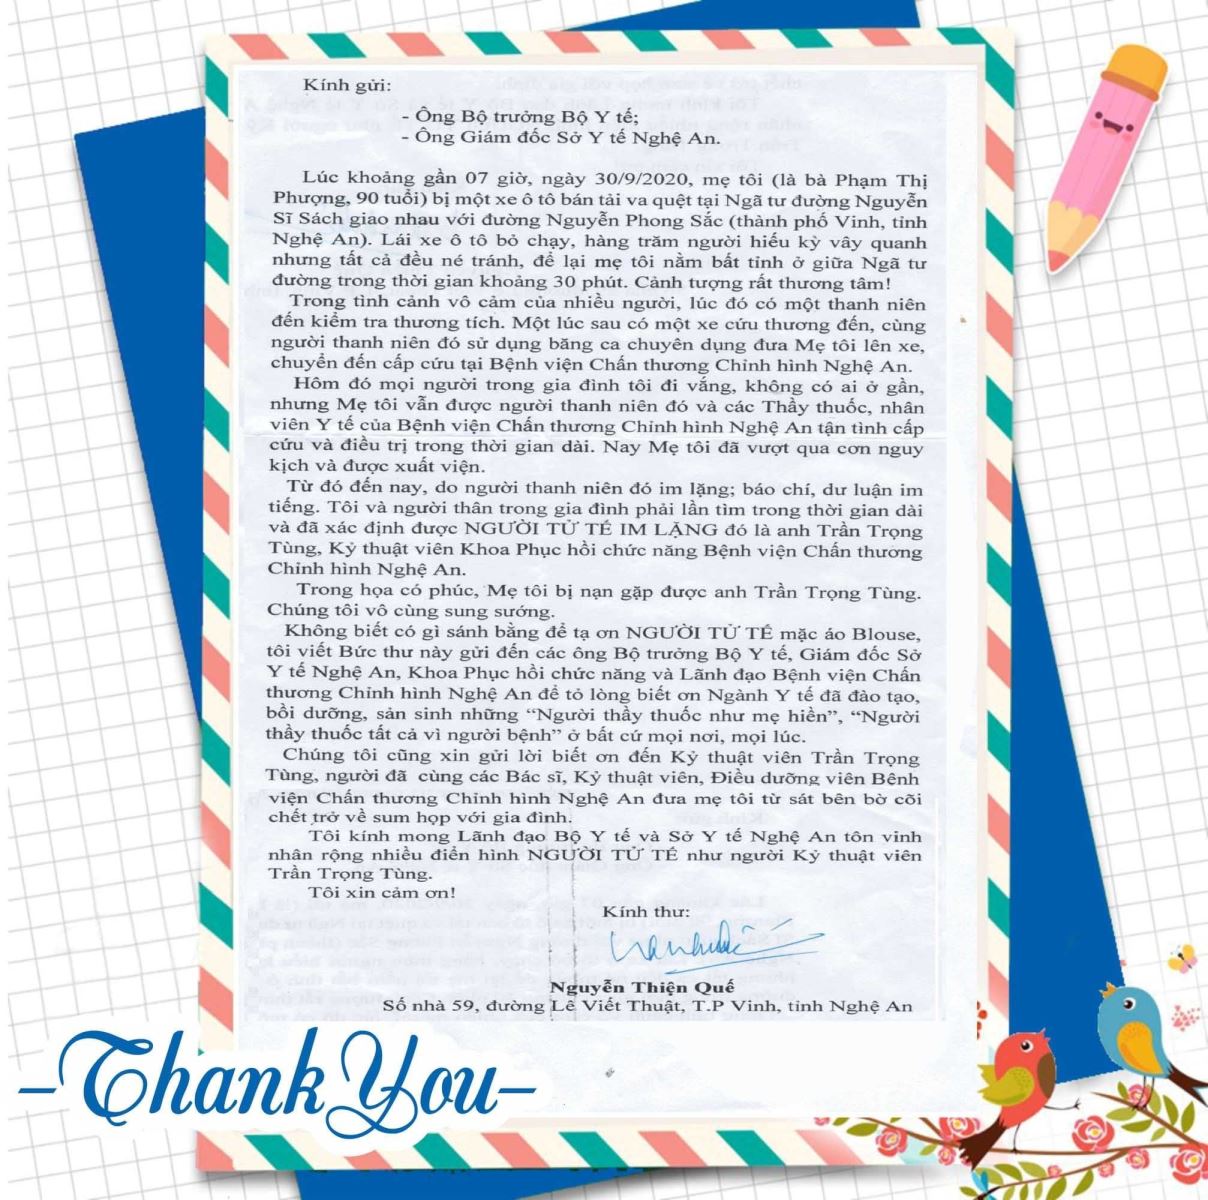 Kính gửi:
- Ông Bộ trưởng Bộ Y tế;
- Ông Giám đốc Sở Y tế Nghệ An.
Lúc khoảng gần 07 giờ, ngày 30/9/2020, mẹ tôi (là bà Phạm Thị
Phượng, 90 tuổi) bị một xe ô tô bán tải va quệt tại Ngã tư đường Nguyễn
Sĩ Sách giao nhau với đường Nguyễn Phong Sắc (thành phố Vinh, tỉnh
Nghệ An). Lái xe ô tô bỏ chạy, hàng trăm người hiếu kỳ vây quanh
nhưng tất cả đều né tránh, để lại mẹ tôi nằm bất tỉnh ở giữa Ngã tư
đường trong thời gian khoảng 30 phút. Cảnh tượng rất thương tâm!
Trong tình cảnh vô cảm của nhiều người, lúc đó có một thanh niên
đến kiểm tra thương tích. Một lúc sau có một xe cứu thương đến, cùng
người thanh niên đó sử dụng băng ca chuyên dụng đưa Mẹ tôi lên xe,
chuyển đến cấp cứu tại Bệnh viện Chấn thương Chỉnh hình Nghệ An.
Hôm đó mọi người trong gia đình tôi đi vắng, không có ai ở gần,
nhưng Mẹ tôi vẫn được người thanh niên đó và các Thầy thuốc, nhân
viên Y tế của Bệnh viện Chấn thương Chỉnh hình Nghệ An tận tình cấp
cứu và điều trị trong thời gian dài. Nay Mẹ tôi đã vượt qua cơn nguy
kịch và được xuất viện.
Từ đó đến nay, do người thanh niên đó im lặng; báo chí, dư luận im
tiếng. Tôi và người thân trong gia đình phải lần tìm trong thời gian dài
và đã xác định được NGƯỜI TỬ TẾ IM LẶNG đó là anh Trần Trọng
Tùng, Kỷ thuật viên Khoa Phục hồi chức năng Bệnh viện Chấn thương
Chỉnh hình Nghệ An.
Trong họa có phúc, Mẹ tôi bị nạn gặp được anh Trần Trọng Tùng.
Chúng tôi vô cùng sung sướng.
Không biết có gì sánh bằng để tạ ơn NGƯỜI TỬ TẾ mặc áo Blouse,
tôi viết Bức thư này gửi đến các ông Bộ trưởng Bộ Y tế, Giám đốc Sở
Y tế Nghệ An, Khoa Phục hồi chức năng và Lãnh đạo Bệnh viện Chấn
thương Chỉnh hình Nghệ An để tỏ lòng biết ơn Ngành Y tế đã đào tạo,
bồi dưỡng, sản sinh những “Người thầy thuốc như mẹ hiền”, “Người
thầy thuốc tất cả vì người bệnh” ở bất cứ mọi nơi, mọi lúc.
Chúng tôi cũng xin gửi lời biết ơn đến Kỷ thuật viên Trần Trọng
Tùng, người đã cùng các Bác sĩ, Kỷ thuật viên, Điều dưỡng viên Bênh
viện Chấn thương Chỉnh hình Nghệ An đưa mẹ tôi từ sát bên bờ cõi
chết trở về sum họp với gia đình.
Tôi kính mong Lãnh đạo Bộ Y tế và Sở Y tế Nghệ An tôn vinh
nhân rộng nhiều điển hình NGƯỜI TỬ TẾ như người Kỷ thuật viên
Trần Trọng Tùng.
Tôi xin cảm ơn!
Kính thư:
Nguyễn Thiện Quế
Số nhà 59, đường Lê Viết Thuật, T.P Vinh, tỉnh Nghệ An
-Thank You-